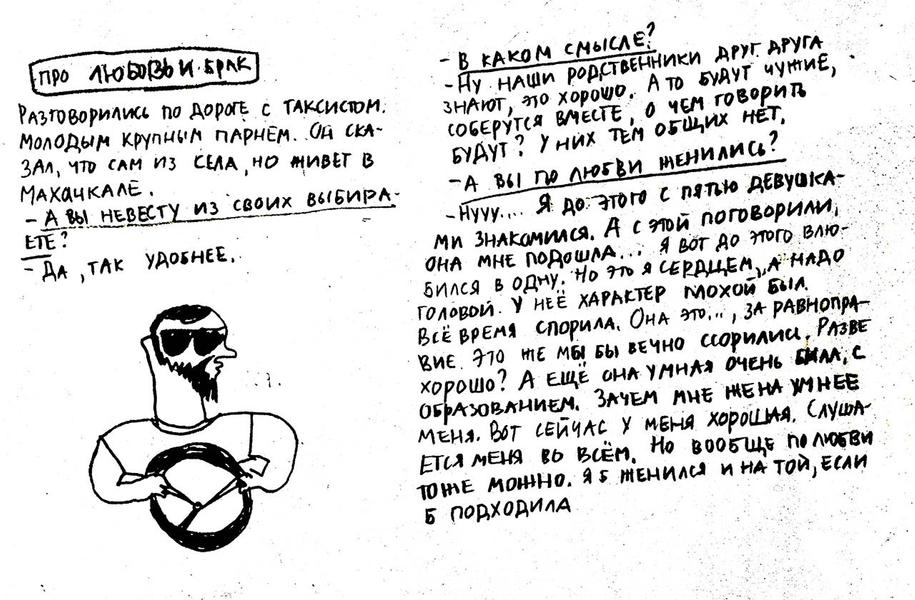 ПРО ЛЮБОВЬ И БРАК
РАЗГОВОРИЛИСЬ ПО ДОРОГЕ С ТАКСИСТОМ.
МОЛОДЫМ КРУПНЫМ ПАРНЕМ. ОН СКА-
ЗАЛ, ЧТО САМ ИЗ СЕЛА, НО ЖИВЕТ В
МАХАЧКАЛЕ.
- А ВЫ НЕВЕСТУ ИЗ СВОИХ ВЫБИРА-
ЕТЕ?
- ДА, ТАК УДОБНЕЕ.
- В КАКОМ СМЫСЛЕ?
- НУ НАШИ РОДСТВЕННИКИ ДРУГ ДРУГА
ЗНАЮТ, ЭТО ХОРОШО. А ТО БУДУТ ЧУЖИЕ,
СОБЕРУТСЯ ВМЕСТЕ, О ЧЕМ ГОВОРИТЬ
БУДУТ? У НИХ ТЕМ ОБЩИХ НЕТ.
- А ВЫ ПО ЛЮБВИ ЖЕНИЛИСЬ?
- НУУУ... Я ДО ЭТОГО С ПЯТЬЮ ДЕВУШКА-
МИ ЗНАКОМИЛСЯ. А С ЭТОЙ ПОГОВОРИЛИ,
ОНА МНЕ ПОДОШЛА... Я ВОТ ДО ЭТОГО ВЛЮ-
БИЛСЯ В ОДНУ. НО ЭТО Я СЕРДЦЕМ, А НАДО
ГОЛОВОЙ. У НЕЁ ХАРАКТЕР ПЛОХОЙ БЫЛ.
ВСЁ ВРЕМЯ СПОРИЛА. ОНА ЭТО..., ЗА РАВНОПРА-
ВИЕ. ЭТО ЖЕ МЫ БЫ ВЕЧНО ССОРИЛИСЬ. РАЗВЕ
ХОРОШО? А ЕЩЁ ОНА УМНАЯ ОЧЕНЬ БЫЛА, С
ОБРАЗОВАНИЕМ. ЗАЧЕМ МНЕ ЖЕНА УМНЕЕ
МЕНЯ. ВОТ СЕЙЧАС У МЕНЯ ХОРОШАЯ. СЛУША-
ЕТСЯ МЕНЯ ВО ВСЁМ. НО ВООБЩЕ ПО ЛЮБВИ
ТОЖЕ МОЖНО. Я Б ЖЕНИЛСЯ И НА ТОЙ, ЕСЛИ
Б ПОДХОДИЛА